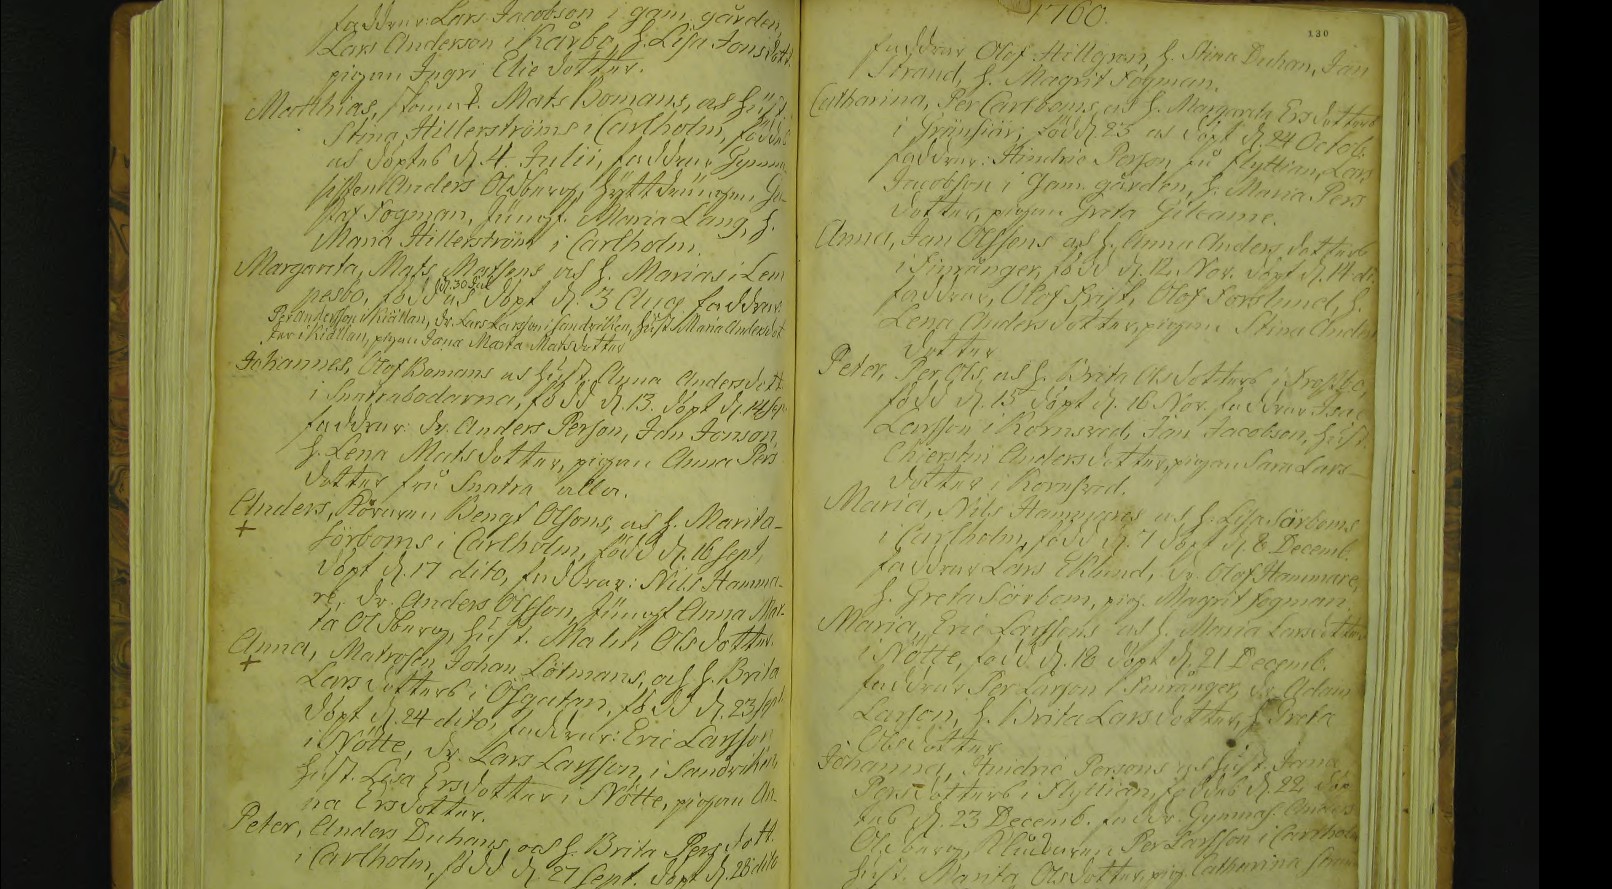 faddrar: Lars Jacobson i gam. gården,
Lars Anderson i Kårbo, h. Lisa Jonsdott.
pigan Ingri Elie dotter.
Matthias, Mats Bomans, och hust.
Stina Hillerströms i Carlholm, föddes
och döptes d. 4. Julii, faddrar Gymna-
sisten Anders Olsburg, Gu-
staf Fogman, Jungf. Maria Lang, h.
Maria Hillerström i Carlholm.
Margareta, Mats Matssens och h. Marias i Lem
pesbo, född d. 30 Jul och döpt d. 3 Aug faddrar
Per anderssson i Källan, dr. Lars Larsson i Sandviken, Hust. Maria Andersdot
ter i Källan, pigan Mats dotter
Johannes, Olof Bomans och Hust. Anna Andersdott.
i Snatrabodarna, född d. 13. döpt d. 14 sept
faddrar: dr. Anders Person, Jan Jonson,
h. Lena Matsdotter, pigan Anna Pers
dotter från Snatra alla.
Anders, Bengt Olsons, och h. Marita
+ Sörboms i Carlholm, född d. 16 Sept,
döpt d. 17 dito, faddrar: Nils Hamma-
re, dr. Anders Olsson, Jungf Anna Mar-
ta Olsburg, hust. Malin Olsdotter.
Anna, Matrosen Johan Lötmans, och h. Brita
+ Larsdotters i Ösgatan, född d. 23 sept
döpt d. 24 dito, faddrar: Eric Larsson
i Nötte, dr. Lars Larsson, i Sandviken
hust. Lisa Ersdotter i Nötte, pigan An-
na Ersdotter.
Peter, Anders Duhans, och h. Brita Persdott.
i Carlholm, född d. 27 Sept. döpt d. 28 dito
1760.
130
faddrar Olof Hillgren, h. Stina Duhan, Jan
Strand, h. Magrit Fogman.
Catharina, Per Carlboms, och h. Margareta Ersdotters
i Gränsiär, född d. 23 och döpt d. 24 Octob.
faddrar: Hindric Person från flyttian, Lars
Jacobson i Gam. gården, h. Maria Pers
dotter, pigan Greta Gileame.
Anna, Jan Olssens och h. Anna Andersdotters
i Finnånger, född d. 12. Nov. döpt d. 14 di.
faddrar, Olof Frisk, Olof Forslund, h.
Lena Andersdotter, pigan Stina Anders
dotter
Peter, Per Ols, och h. Brita Olsdotters i Frossbo,
född d. 15 döpt d. 16 Nov. faddrar Isac
Larsson i Kornsved, Jan Jacobson, hust.
Chierstin Andersdotter, pigan Sara Lars-
dotter i Kornsved.
Maria, Nils Hammares och h. Lisa Särboms
i Carlholm, född d. 7 döpt d. 8 Decemb.
faddrar Lars Eklund, dr. Olof Hammare,
h. Greta Särbom, pig. Magrit Fogman.
Maria, Eric Larssons och h. Maria Larsdotters
i Nötte, född d. 18 döpt d. 21 Decemb.
faddrar Per Larson i Finnånger, dr. Adam
Larson, h. Brita Larsdotter, h. Greta
Olsdotter
Johanna, Hindric Persons och hust.
Persdotters i Flyttian, föddes d. 22 döp
tes d. 23 Decemb. faddr. Gymnas. Anders
Olsburg, Per Larsson i Carlholm
hust. Marita Olsdotter, pig. Catharina